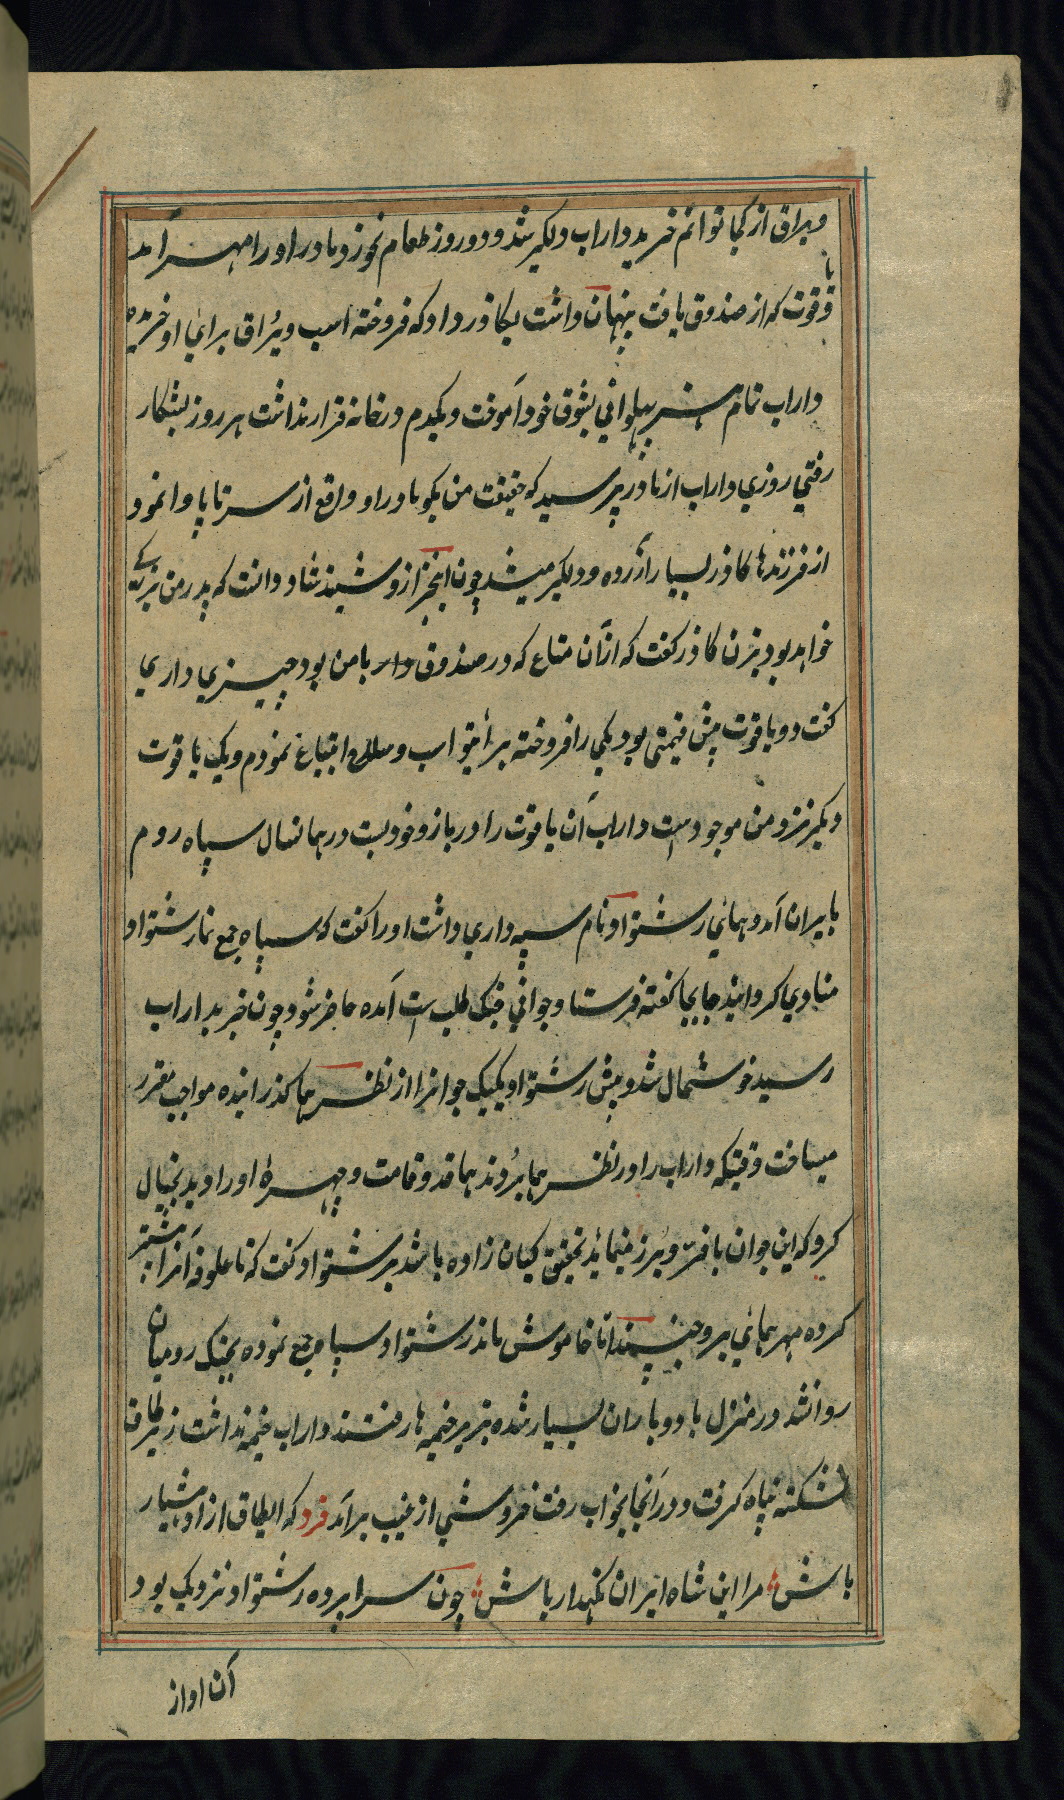 ویراق از کجا توانم خرید داراب دلکیر شد و دو روز طعام نخورد مادر او را مهر آمد
یاقوت که از صندوق یافت پنهان داشت بکازر داد که فروخته اسب و یراق برای او خریده
داراب تمام هنر پهلوانی بشوق خود آموخت و یکدم در خانه قرار نداشت هر روز بشکار
رفتی روزی داراب از مادر پرسید که حقیقت من بکو مادر او واقع از سر تا پا وا نمود
از فرزندها کازر بسیار آزرده و دلکیر میشد چون اینخبر ازو شنید شاد و دانست که پدر من بزرکی
خواهد بود بزن کازر کفت که از آن متاع که در صندوق با من بود چیزی داری
کفت دو یاقوت پیش قیمتی بود یکی را فروخته برای تو اسب و سلاح ابتیاع نمودم و یک یاقوت
دیکر نزد من موجود است داراب آن یاقوت را در بازو خود بست در همانسال سپاه روم
بایران آمد و همای رشنواد نام سپه داری داشت او را کفت که سپاه جمع نماید رشنواد
منادی کردانید جابجا کفته فرستاد جوانی جنک طلب است آمده حاضر شود چون خبر بداراب
رسید خوشحال شد و پیش رشنواد یکیک جوانرا از نظر هما کذرانیده مواجب مقرر
میساخت وقتیکه داراب را در نظر هما بردند هما قد و قامت و چهرهٔ او را دید بخیال
کرد که این جوان با فر و برز مینماید بتحقیق کیان زاده باشد بر رشنواد کفت که تا علوفه آنرا بیشتر
کرده مهر همای برو جنبید اما خاموش ماند رشنواد سپاه جمع نموده بجنک رومیان
روانشد در منزل باد و باران بسیار شده بزیر خیمه ها رفتند داراب خیمه نداشت زیر طاق
شکسته پناه کرفت و در آنجا بخواب رفت خروشی از غیب برآمد فرد که ایطاق ازاد هشیار
باش مر این شاه ایران نکهدار باش چون سراپرده رشنواد نزدیک بود
آن اواز